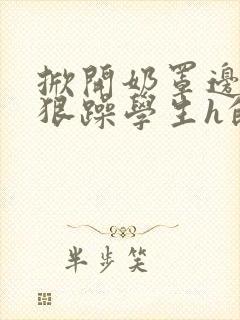 掀開奶罩邊
狠躁學生h
半步笑